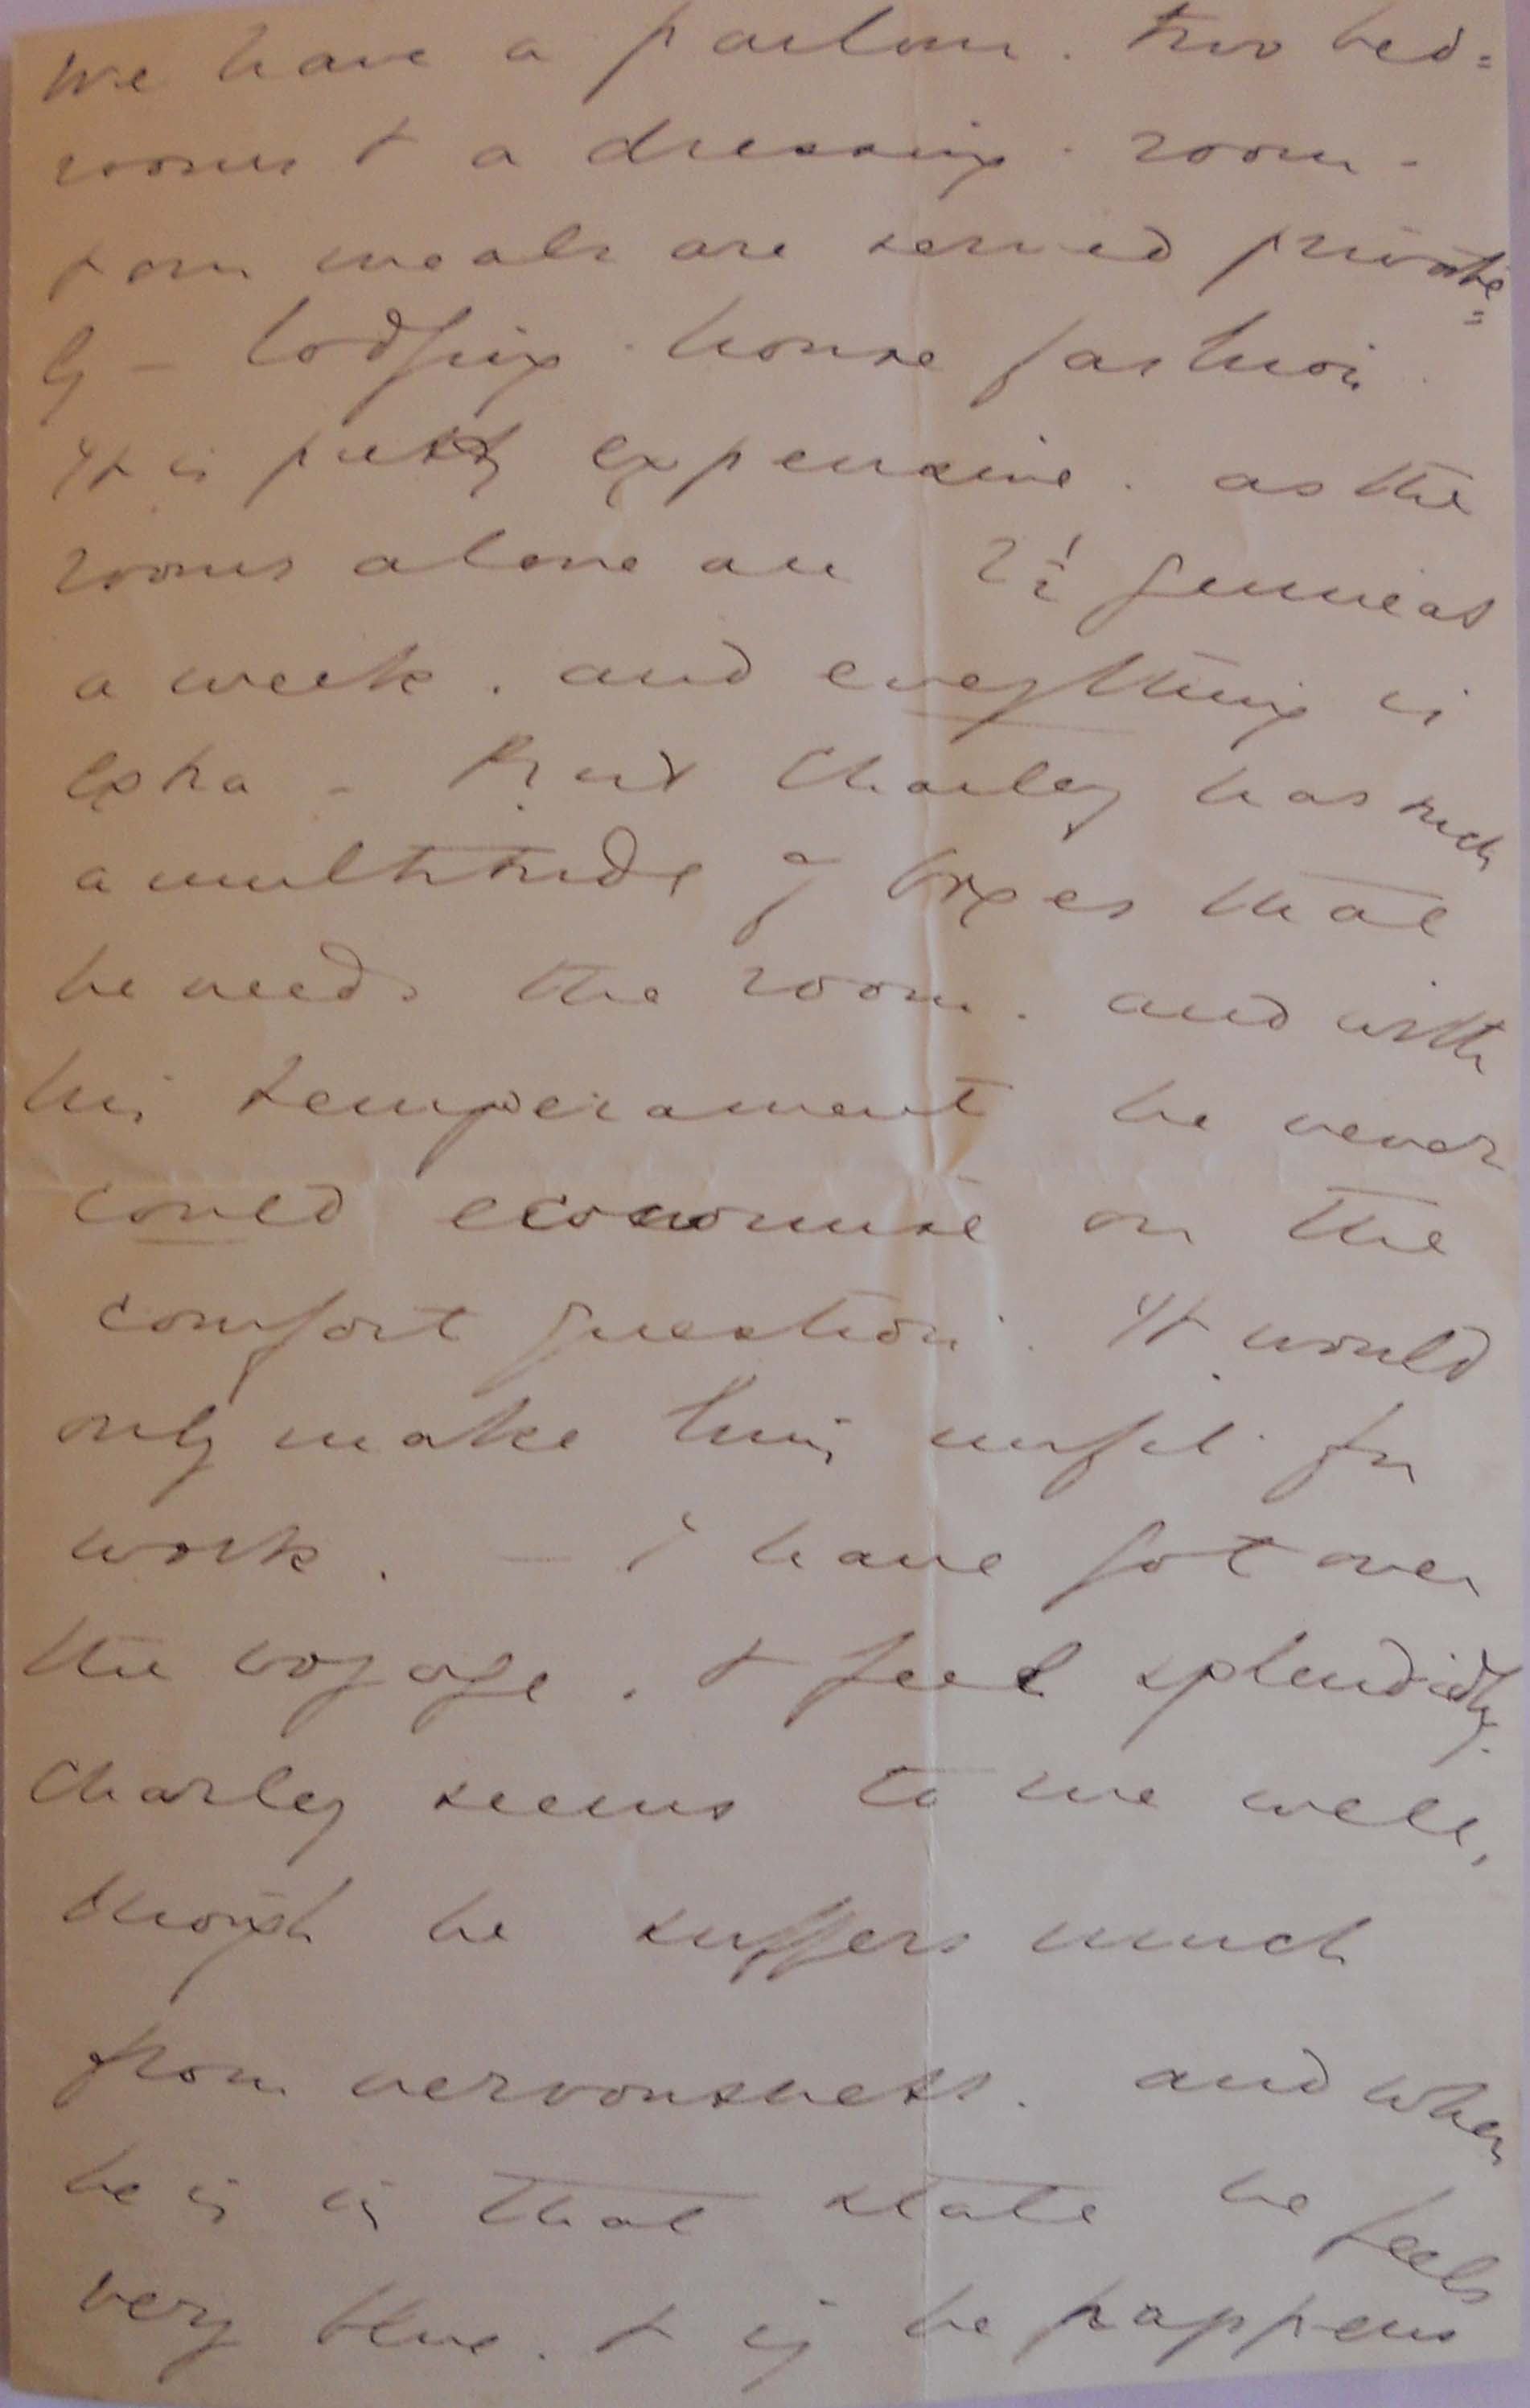 We have a parlour. two bed=
rooms & a dressing-room -
& our meals are served private=
ly - lodging-house fashion.
It is pretty expensive. as the
rooms alone are 2½ guineas
a week. and everything is
extra - But Charley has such
a multitude of boxes that
he needs the room. and with
his temperament he never
could economise on the
comfort question. It would
only make him unfit for
work. - I have got over
the voyage. & feel splendidly.
Charley seems to me well,
though he suffers much
from nervousness. and when
he is in that state he feels
very blue. & if he happens